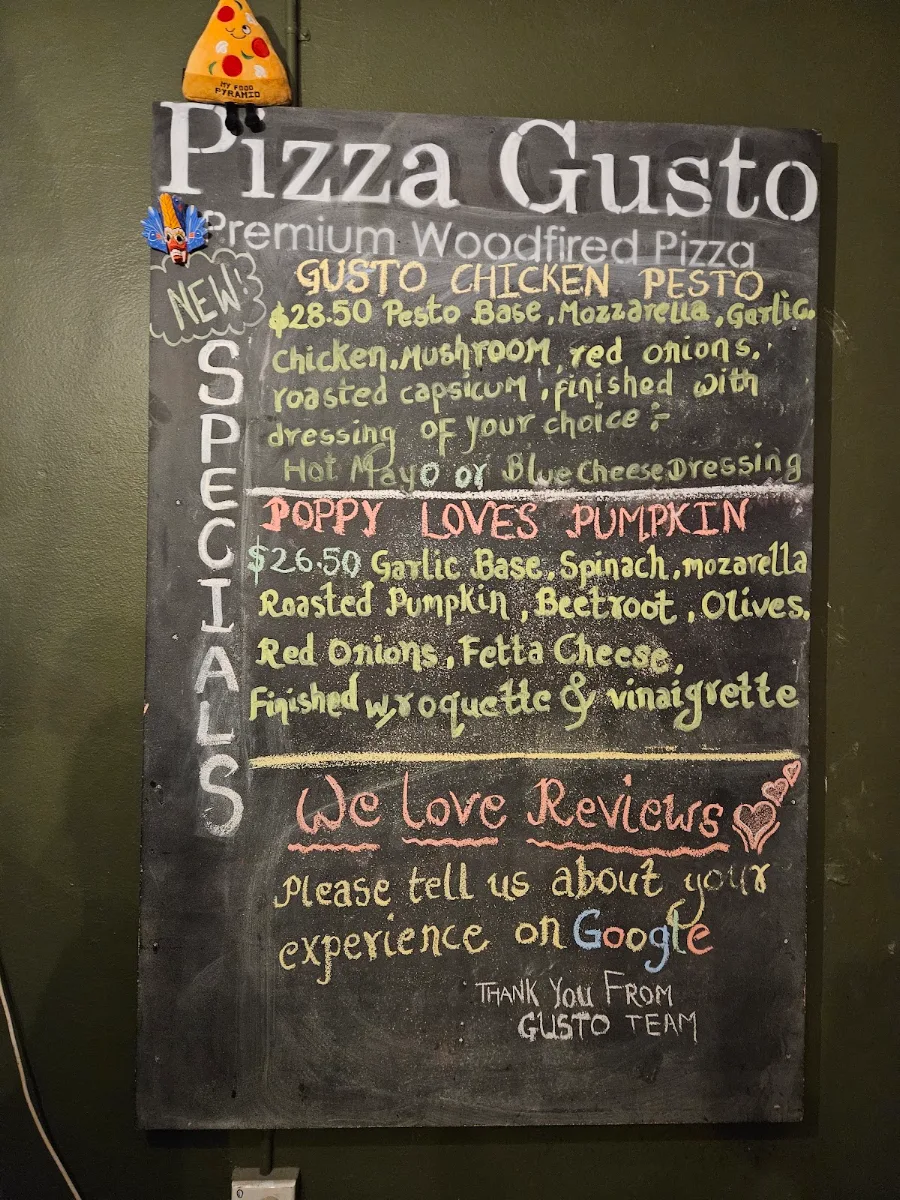 MY FOOD
PYRAMID
Pizza Gusto
Premium Woodfired Pizza
NEW!
SPECIALS
GUSTO CHICKEN PESTO
$28.50 Pesto Base, Mozzarella, Garlic,
Chicken, MUSHROOM, red onions,
roasted capsicum, finished with
dressing of your choice :-
Hot Mayo or Blue Cheese Dressing
POPPY LOVES PUMPKIN
$26.50 Garlic Base, Spinach, mozarella
Roasted Pumpkin, Beetroot, Olives,
Red Onions, Fetta Cheese,
Finished w, roquette & vinaigrette
We Love Reviews
Please tell us about your
experience on Google
THANK YOU FROM
GUSTO TEAM